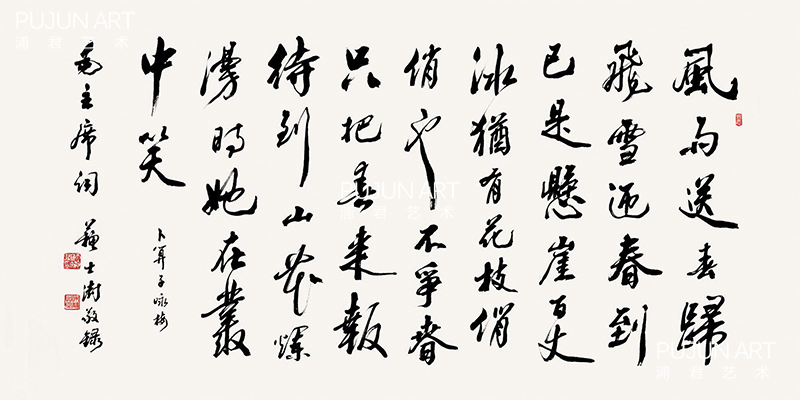 風雨送春歸
飛雪迎春到
已是懸崖百丈
冰猶有花枝俏
俏也不爭春
只把春來報
待到山花爛
漫時她在叢
中笑
卜算子咏梅
毛主席詞 蘇士澍敬錄
PUJUN ART
浦君艺术
PUJUN ART
浦君艺术
PUJUN ART
浦君艺术